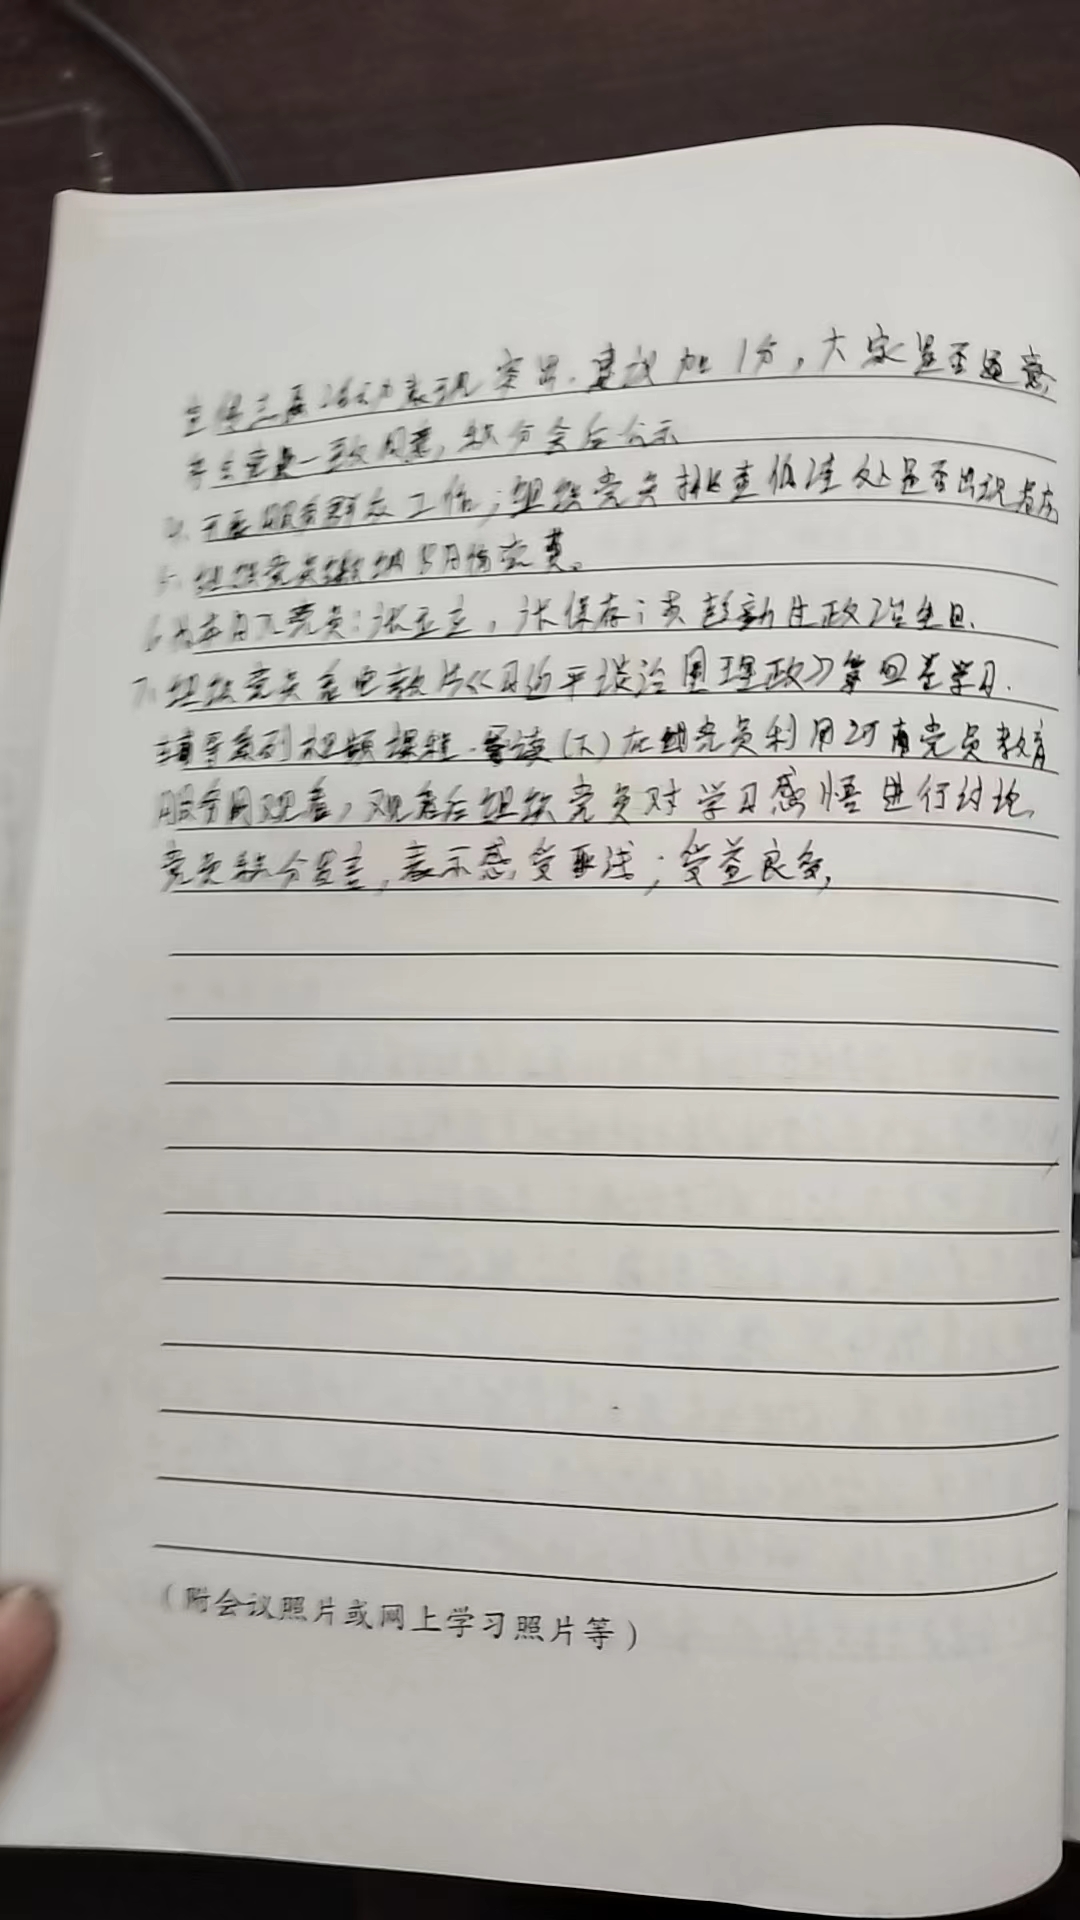 活动表现突出,建议加1分,大家是否同意
党员一致同意,积分会后公示
4.开展服务群众工作;组织党员排查低洼处是否出现
5.组织党员缴纳5月份党费。
6.为本月过党员:张玉立,张保存,彭新过政治生日.
7.组织党员看电教片《习近平谈治国理政》第四卷学习.
辅导系列视频课程.导读(下)在线党员利用河南党员教育
服务网观看,观看后组织党员对学习感悟进行讨论
党员积分发言,表示感受颇深;受益良多,
(附会议照片或网上学习照片等)